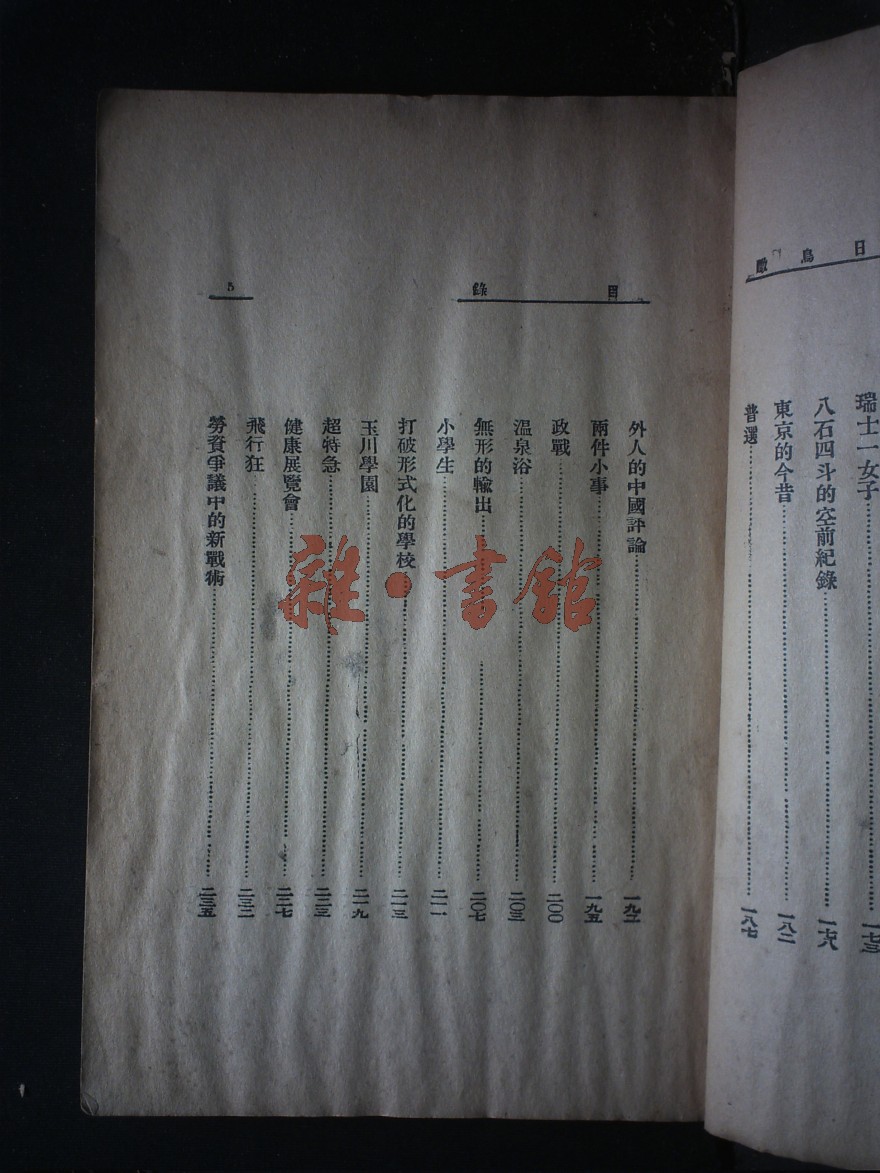 日鳥瞰
瑞士一女子 一七三
八石四斗的空前紀錄 一七八
東京的今昔 一八二
普選 一八七
目錄
5
外人的中國評論
兩件小事 一九五
政戰 二〇〇
温泉浴 二〇三
無形的輸出 二〇七
小學生 二一一
打破形式化的學校 二一三
玉川學園 二一九
超特急 二二三
健康展覽會 二二七
飛行狂 二三二
勞資爭議中的新戰術 二三五
雜·書館